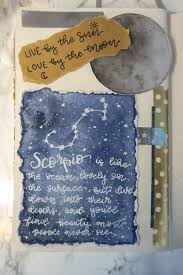 LIVE by the SUN
LOVE by the MOON
Scorpio is like
the ocean, lovely on
the surface, but dive
down into their
depths, and you'll
find beauty most
people never see.